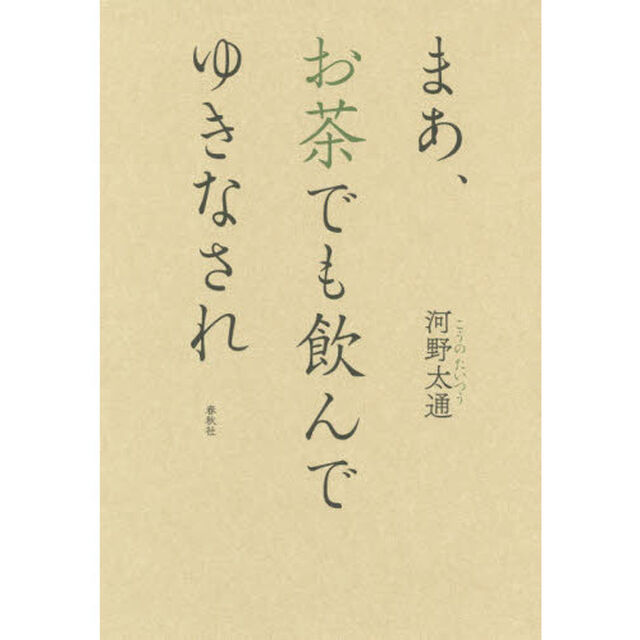 まあ、
お茶でも飲んで
ゆきなされ
河野太通
こうのたいつう
春秋社